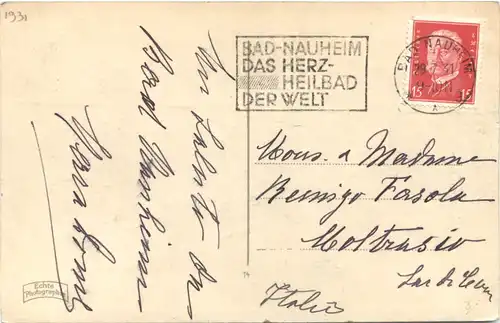 1931
BAD-NAUHEIM
DAS HERZ-
HEILBAD
DER WELT
BAD-NAUHEIM
15 15
Un saluto da
Bad Nauheim
Mons. a Madame
Remigo Fasola
Moltrasio
Italie
Echte
Photographie